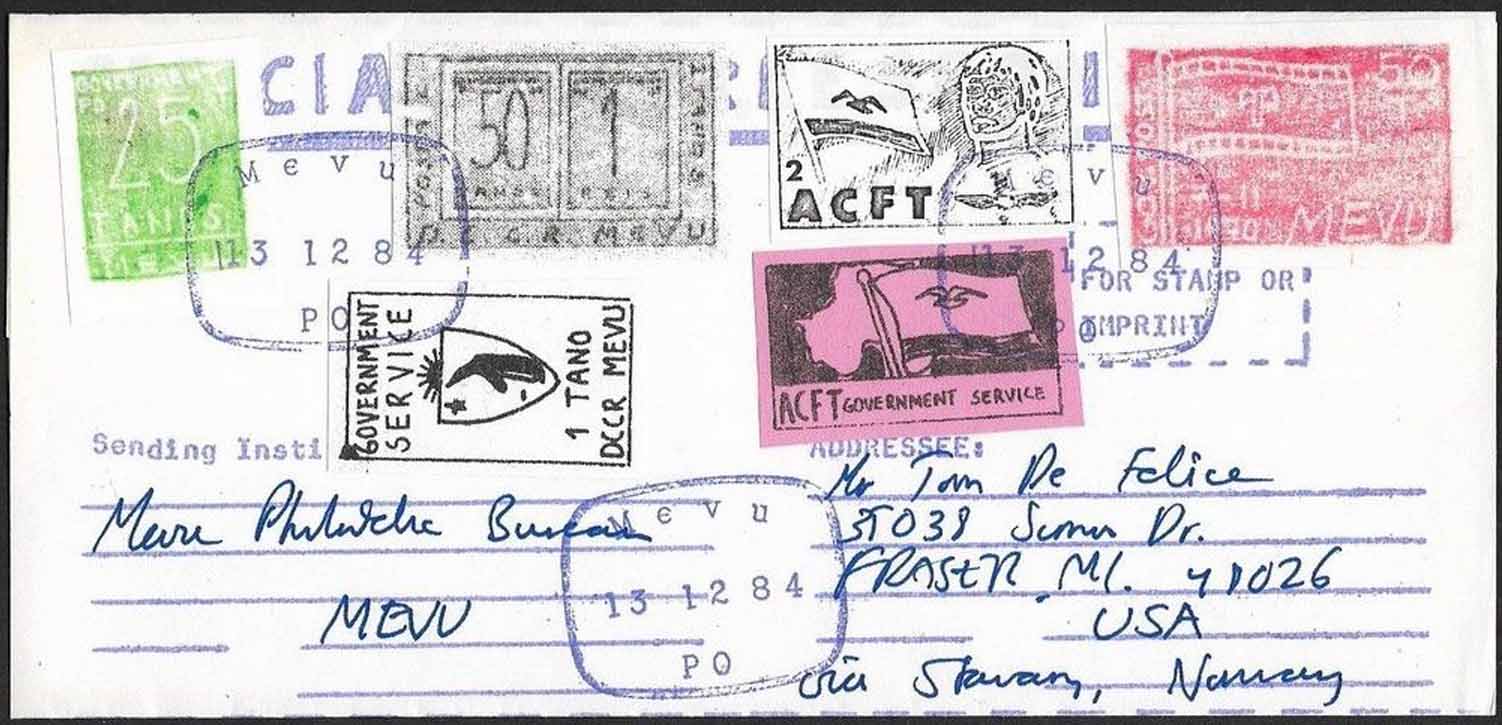 GOVERNMENT
25
TANOS
CIA
50 1
TANOS REIS
MEVU
2
ACFT
50
MEVU
Mevu
13 12 84
PO
Mevu
13 12 84
PO
FOR STAMP OR
IMPRINT
GOVERNMENT
SERVICE
1 TANO
DCCR MEVU
ACFT GOVERNMENT SERVICE
Sending Insti
ADDRESSEE:
Mevu Philatelic Bureau
MEVU
Mevu
13 12 84
PO
Mr Tom De Felice
Dr.
FRASER MI. 48026
USA
via Stavang, Norway